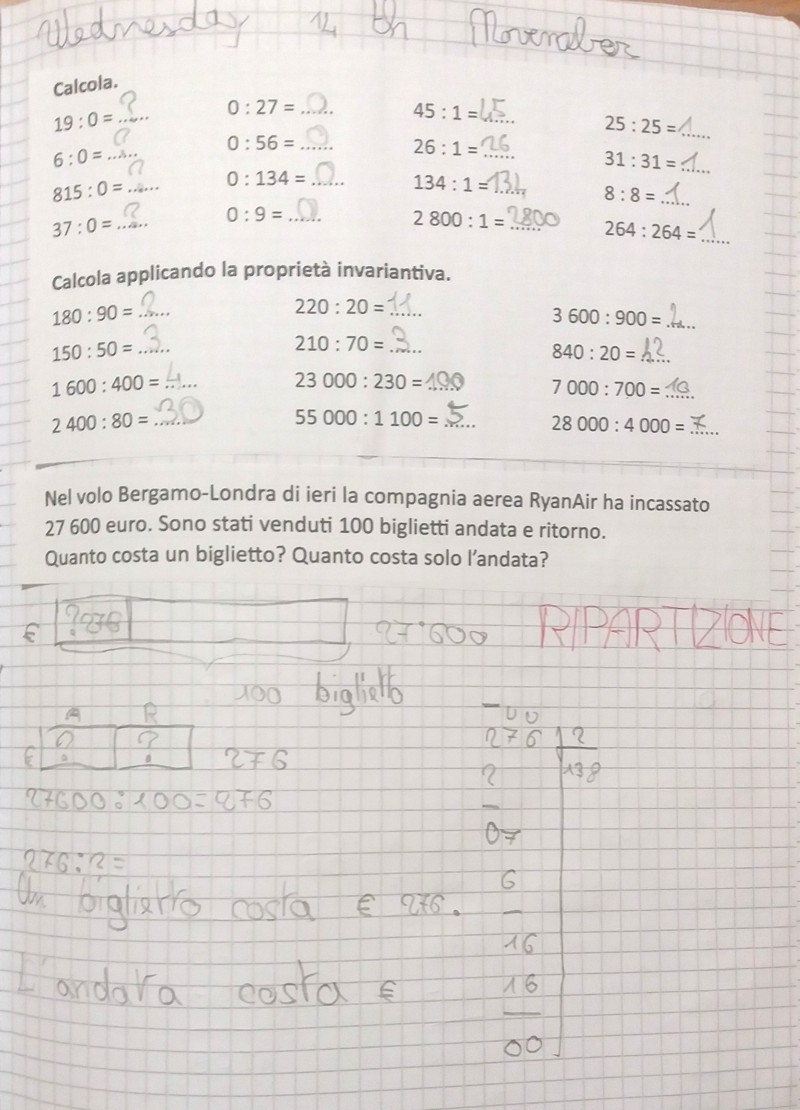 Wednesday 14 th Movenaber
Calcola.
19 : 0 = ...?... 0 : 27 = ...0... 45 : 1 = 45 25 : 25 = 1
6 : 0 = ...?... 0 : 56 = ...0... 26 : 1 = 26 31 : 31 = 1
815 : 0 = ...?... 0 : 134 = ...0... 134 : 1 = 134 8 : 8 = 1
37 : 0 = ...?... 0 : 9 = ...0... 2 800 : 1 = 2800 264 : 264 = 1
Calcola applicando la proprietà invariantiva.
180 : 90 = 2 220 : 20 = 11 3 600 : 900 = 
150 : 50 = 3 210 : 70 = 3 840 : 20 = 42
1 600 : 400 = 4 23 000 : 230 = 100 7 000 : 700 = 10
2 400 : 80 = 30 55 000 : 1 100 = 5 28 000 : 4 000 = 7
Nel volo Bergamo-Londra di ieri la compagnia aerea RyanAir ha incassato
27 600 euro. Sono stati venduti 100 biglietti andata e ritorno.
Quanto costa un biglietto? Quanto costa solo l'andata?
€ ? 276 27.600 RIPARTIZIONE
100 biglietto
A R
€ ? ? 276
27600 : 100 = 276
276 : 2 =
Un biglietto costa € 276.
L'andata costa €
00
276 2
2 138
07
6
16
16
00